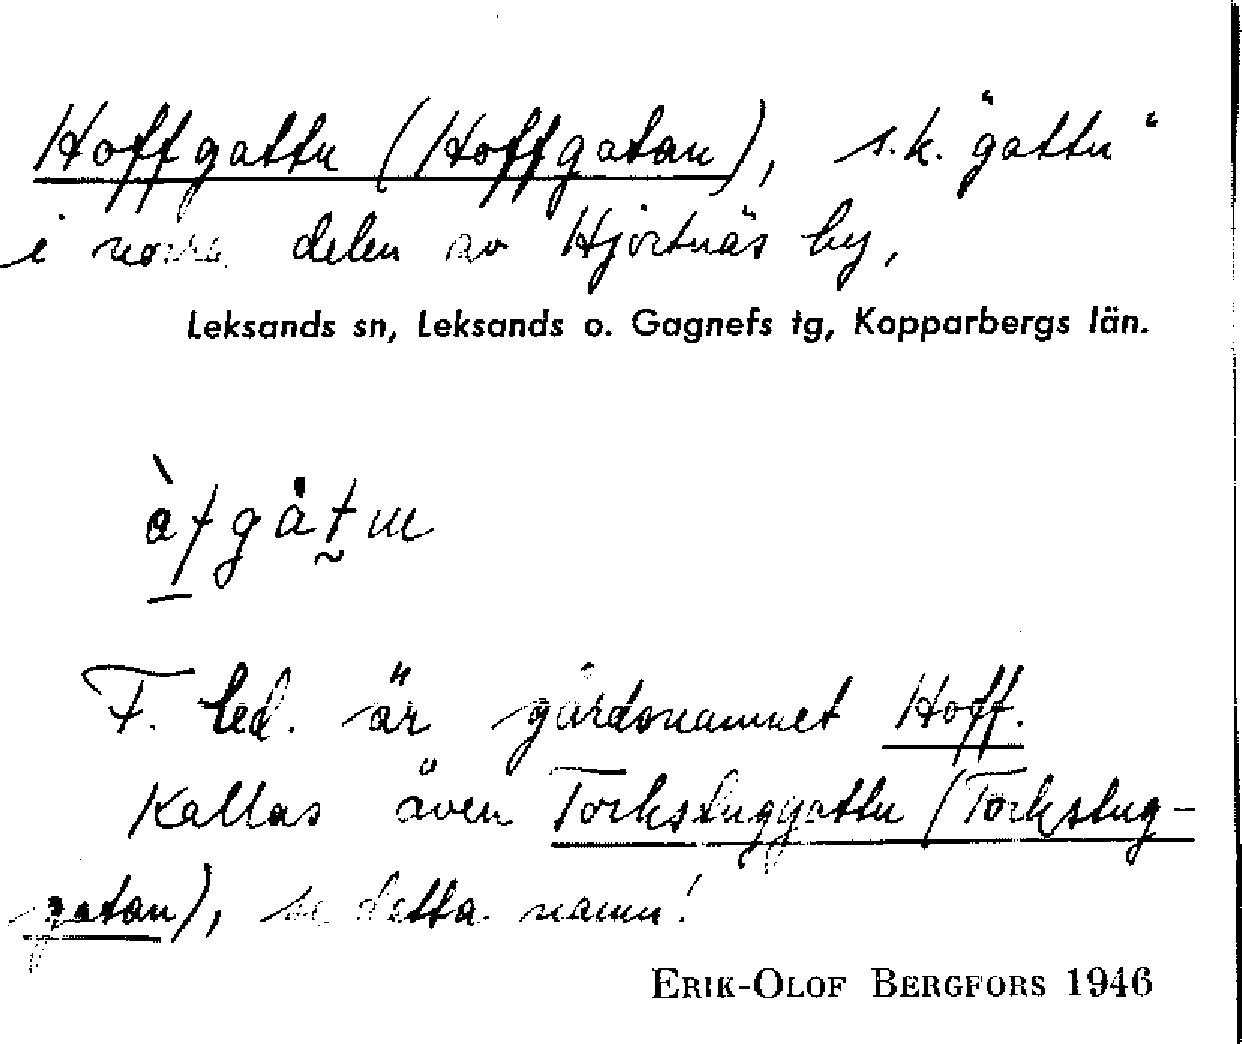 Hoffgattu (Hoffgatan), s.k. "gattu"
i norra delen av Hjortnäs by,
Leksands sn, Leksands o. Gagnefs tg, Kopparbergs län.
F. led. är gårdsnamnet Hoff.
Kallas även Torkstuggattu (Torkstug-
gatan), se detta namn!
ERIK-OLOF BERGFORS 1946